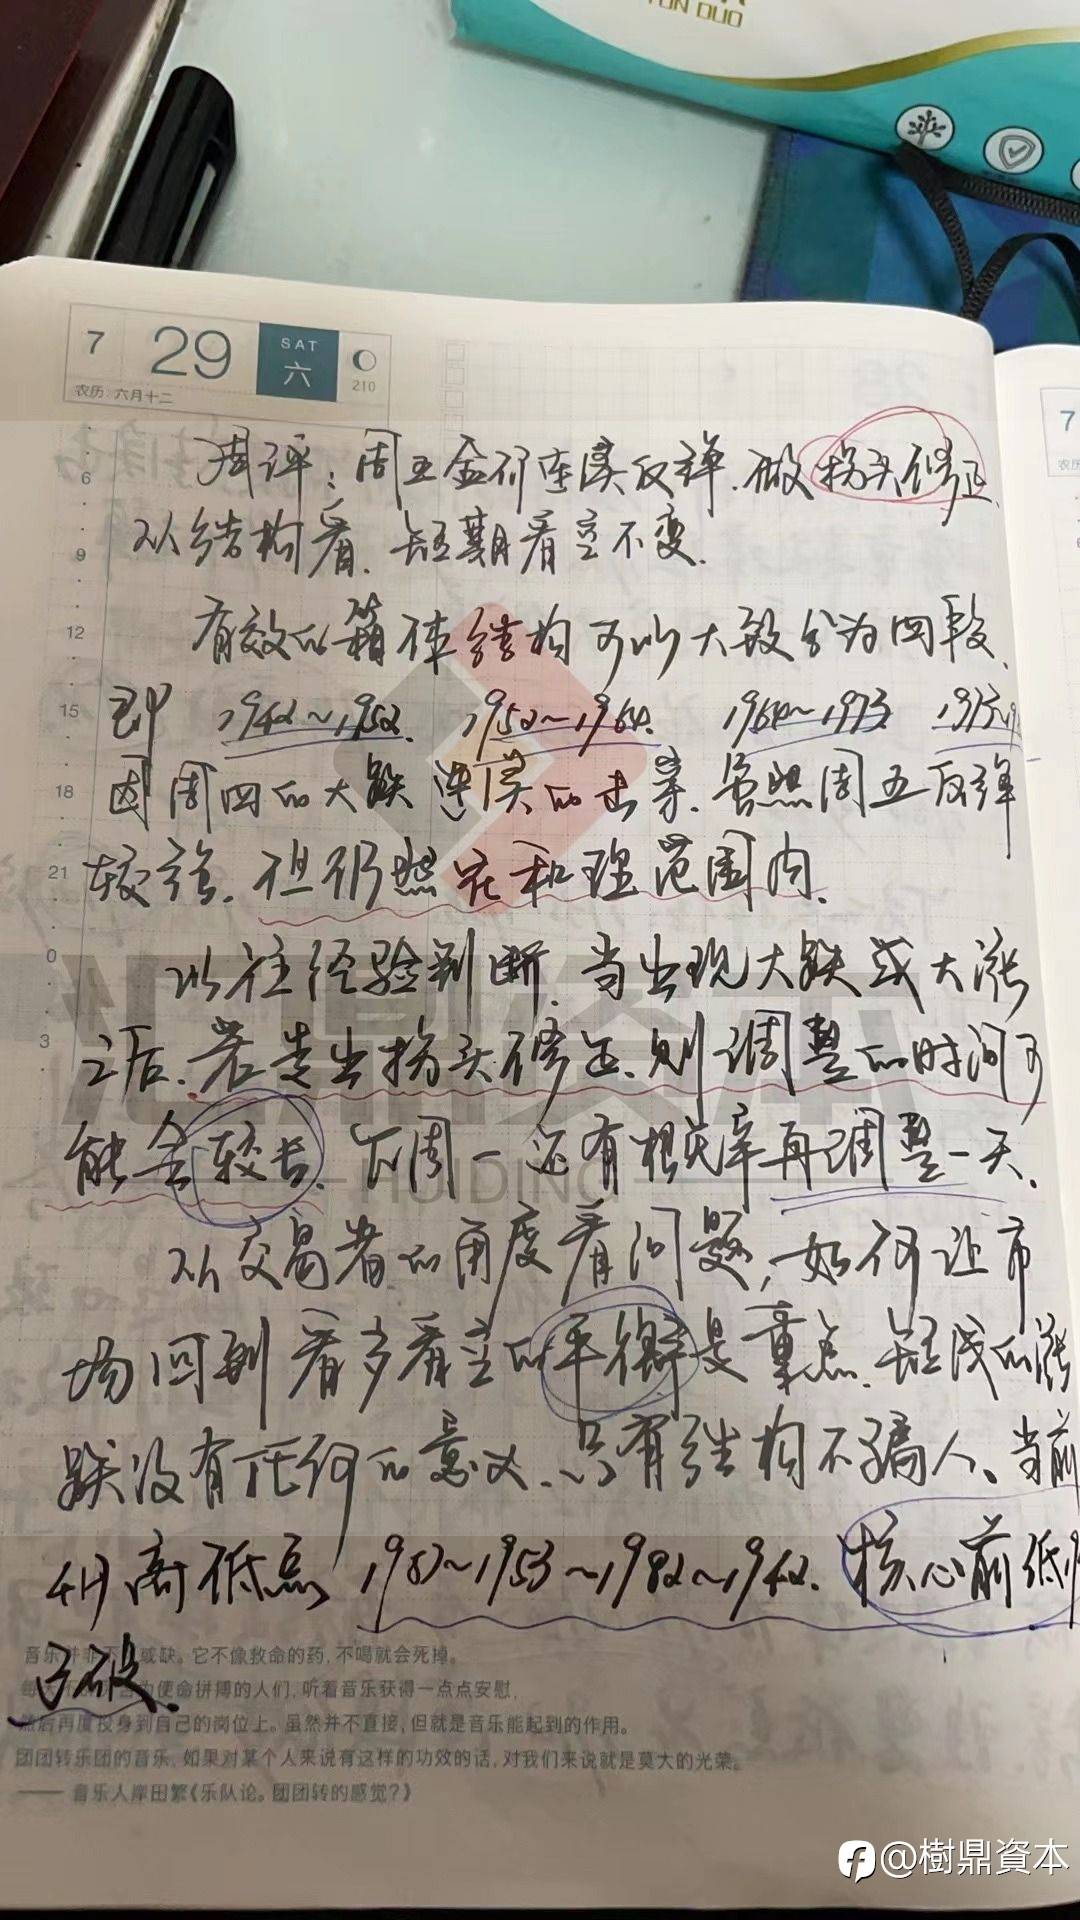 TON DUO
7 29 SAT 六
农历:六月十二 210
7
农历
周评:周五金价连续反弹.做拐头修正.
从结构看.短期看空不变.
有效的箱体结构可以大致分为四段、
即 1942~1952. 1952~1964. 1964~1973. 1973~
因周四的大跌连续的击穿.虽然周五反弹
较强.但仍然在和理范围内.
以往经验判断.当出现大跌或大涨
之后.若走出拐头修正.则调整的时间可
能会较长.下周一还有概率再调整一天.
从交易者的角度看问题,如何让市
场回到看多看空的平衡是重点.短线的涨
跌没有任何的意义.只有结构不骗人.当前
4H高低点 1953~1982~1942.核心前低
已破.
6
9
12
15
18
21
0
3
汇鼎资本
HUIDING
音乐并非不 或缺。它不像救命的药,不喝就会死掉。
为使命拼搏的人们,听着音乐获得一点点安慰,
然后再度投身到自己的岗位上。虽然并不直接,但就是音乐能起到的作用。
团团转乐团的音乐,如果对某个人来说有这样的功效的话,对我们来说就是莫大的光荣。
—— 音乐人岸田繁《乐队论。团团转的感觉?》
@樹鼎資本